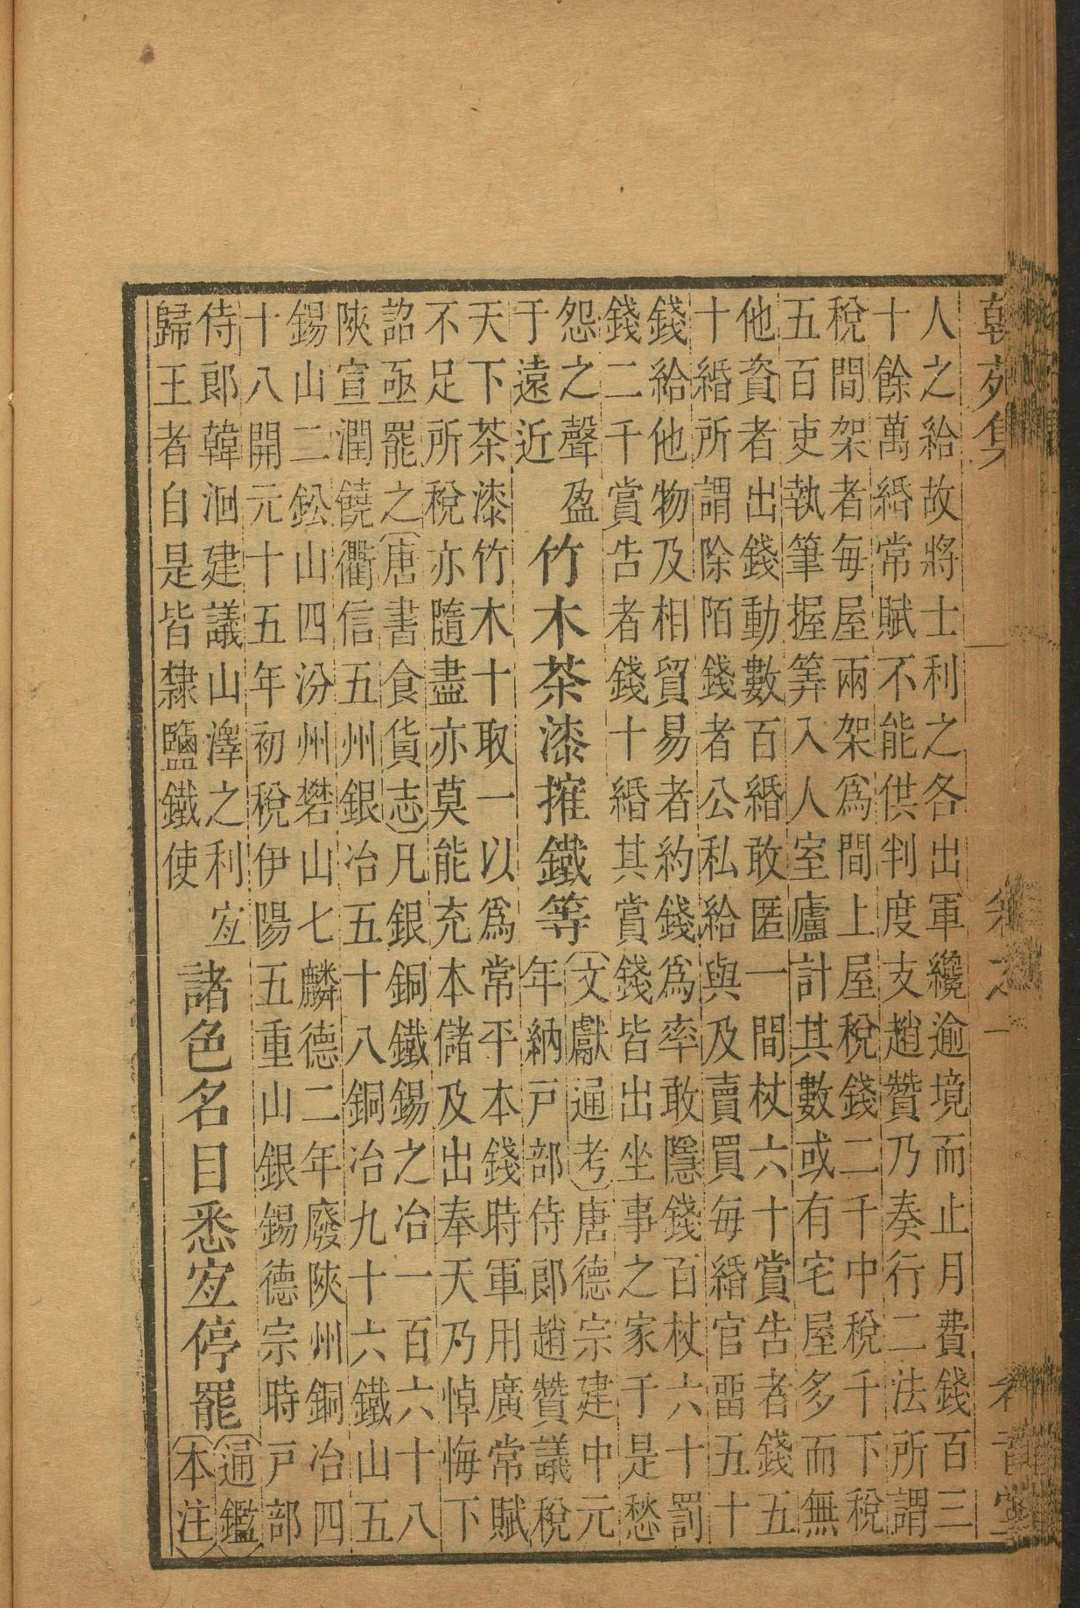 苑集
卷之一
人之給故將士利之各出軍纔逾境而止月費錢百三
十餘萬緡常賦不能供判度支趙贊乃奏行二法所謂
稅間架者每屋兩架爲間上屋稅錢二千中稅千下稅
五百吏執筆握筭入人室廬計其數或有宅屋多而無
他資者出錢動數百緡敢匿一間杖六十賞告者錢五
十緡所謂除陌錢者公私給與及賣買每緡官畱五十
錢給他物及相貿易者約錢爲率敢隱錢百杖六十罰
錢二千賞告者錢十緡其賞錢皆出坐事之家于是愁
怨之聲盈
于遠近
竹木茶漆搉鐵等
(文獻通考)唐德宗建中元
年納戸部侍郎趙贊議稅
天下茶漆竹木十取一以爲常平本錢時軍用廣常賦
不足所稅亦隨盡亦莫能充本儲及出奉天乃悼悔下
詔亟罷之(唐書食貨志)凡銀銅鐵錫之冶一百六十八
陝宣潤饒衢信五州銀冶五十八銅冶九十六鐵山五
錫山二鈆山四汾州礬山七麟德二年廢陝州銅冶四
十八開元十五年初稅伊陽五重山銀錫德宗時戸部
侍郎韓洄建議山澤之利宐
歸王者自是皆隸鹽鐵使
諸色名目悉宐停罷
(通鑑
本注)